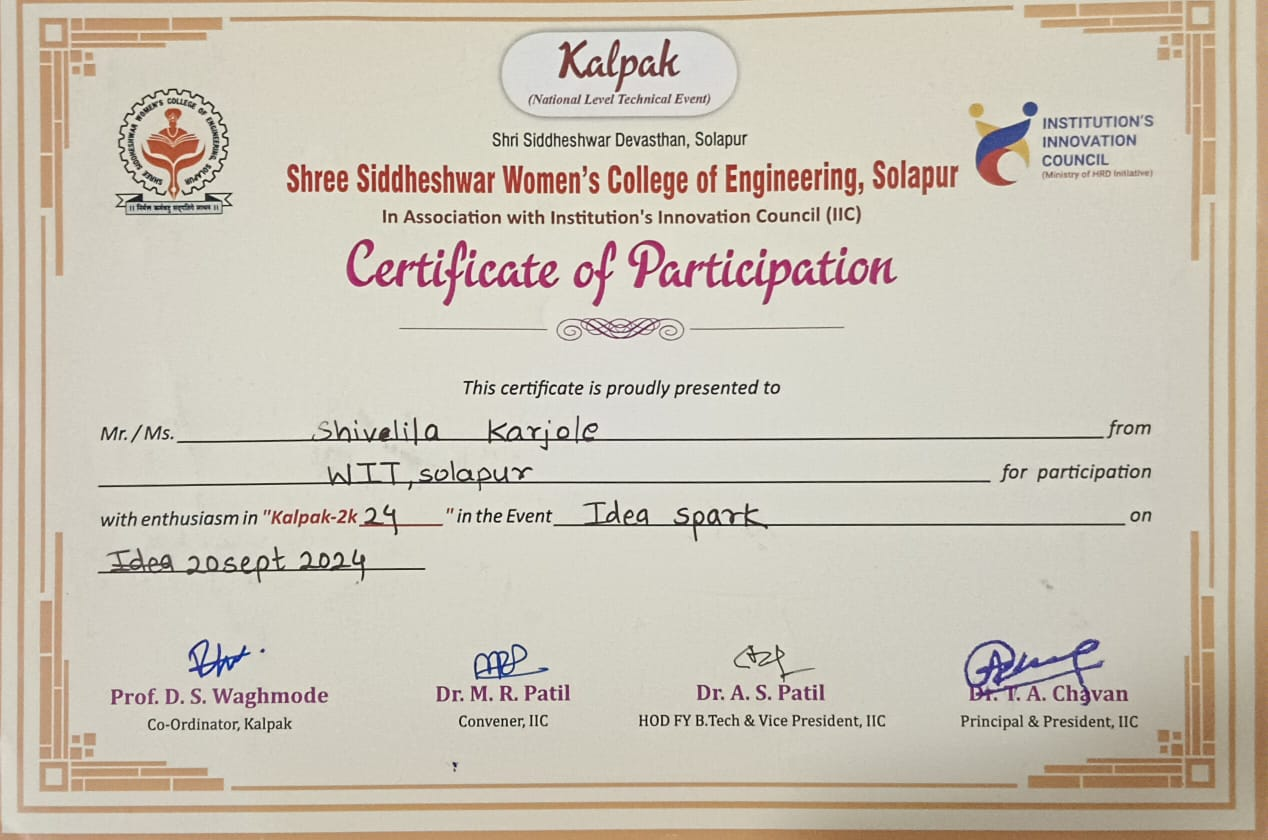 Kalpak
(National Level Technical Event)
SHREE SIDDHESHWAR WOMEN'S COLLEGE OF ENGINEERING, SOLAPUR
INSTITUTION'S
INNOVATION
COUNCIL
(Ministry of HRD Initiative)
Shri Siddheshwar Devasthan, Solapur
Shree Siddheshwar Women's College of Engineering, Solapur
In Association with Institution's Innovation Council (IIC)
Certificate of Participation
This certificate is proudly presented to
Mr. / Ms. Shivelila Karjole from
WIT, solapur for participation
with enthusiasm in "Kalpak-2k 24 " in the Event Idea spark on
Idea 20 sept 2024
Prof. D. S. Waghmode Dr. M. R. Patil Dr. A. S. Patil Dr. T. A. Chavan
Co-Ordinator, Kalpak Convener, IIC HOD FY B.Tech & Vice President, IIC Principal & President, IIC